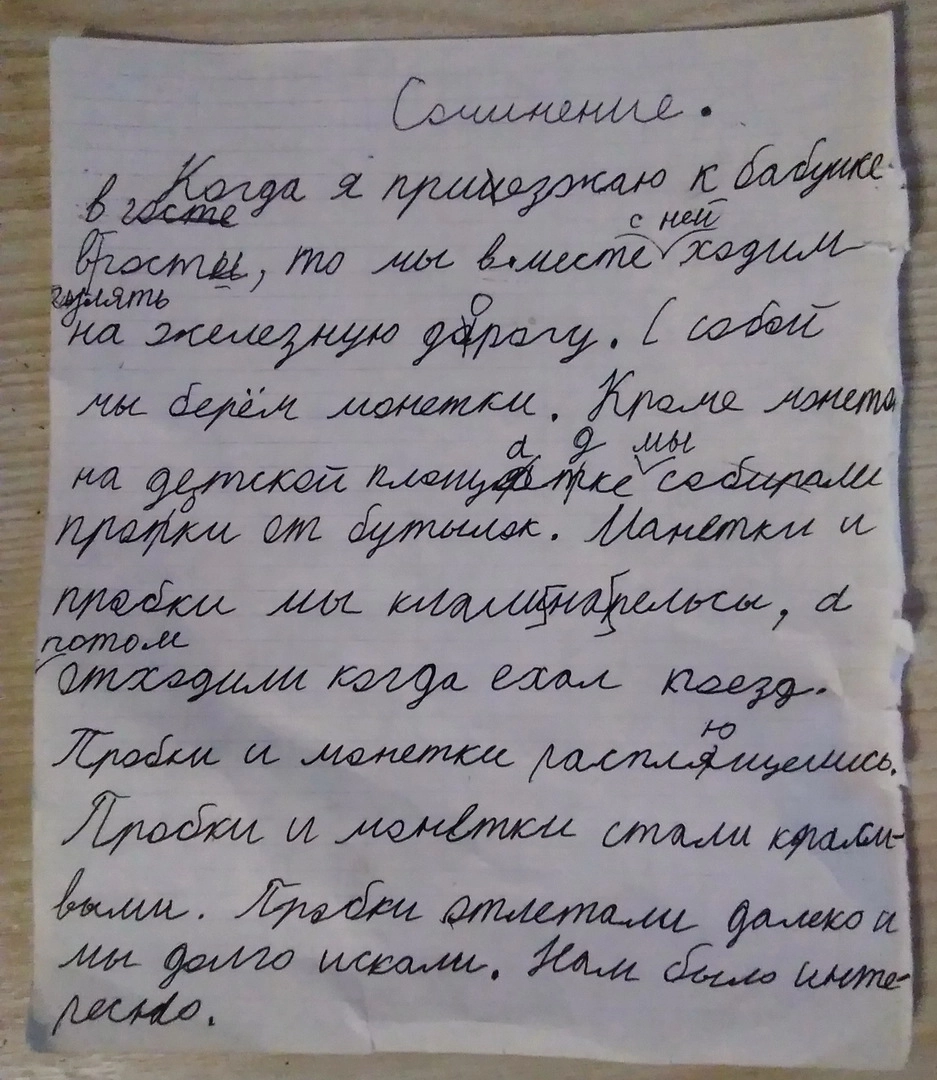 Сочинение.
Когда я приезжаю к бабушке
в госте
в гости, то мы вместе с ней ходим
гулять
на железную дорогу. С собой
мы берём монетки. Кроме монето
на детской площадке мы собирали
пробки от бутылок. Манетки и
пробки мы клали на рельсы, а
потом
отходили когда ехал поезд.
Пробки и монетки расплющились.
Пробки и монетки стали краси-
выми. Пробки отлетали далеко и
мы долго искали. Нам было инте-
ресно.